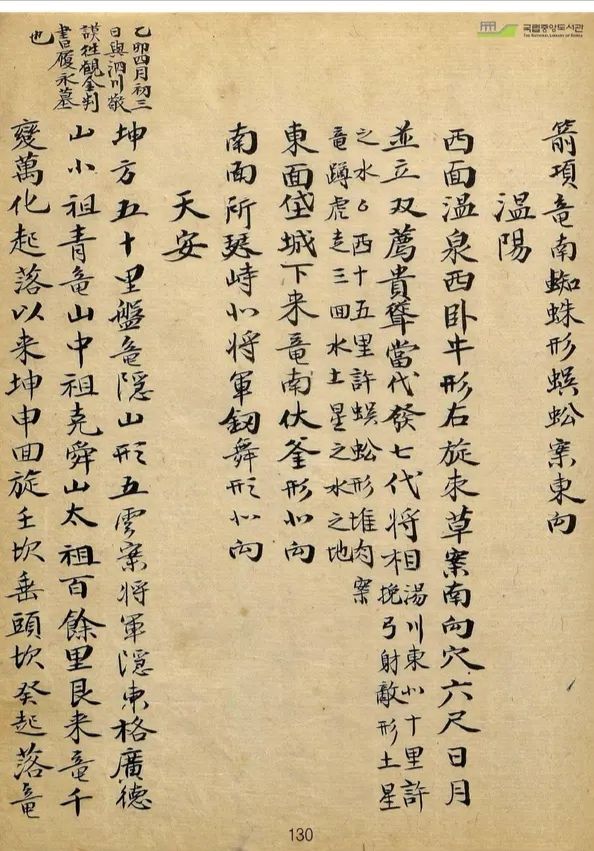 국립중앙도서관
THE NATIONAL LIBRARY OF KOREA
箭項竜南蜘蛛形蜈蚣案東向
温陽
西面温泉西卧牛形右旋束草案南向穴六尺日月
並立双薦貴聳當代發七代将相湯川東北十里許
挽弓射敵形土星
之水口西十五里許蜈蚣形堆肉案
竜蹲虎走三回水土星之水之地
東面垈城下来竜南伏釜形北向
南面所瑟峙北将軍釼舞形北向
天安
坤方五十里盤竜隠山形五雲案将軍隠東格廣德
山小祖青竜山中祖堯舜山太祖百餘里艮来竜千
變萬化起落以来坤申回旋壬坎垂頭坎癸起落竜
乙卯四月初三
日與泗川敬
謨往觀金判
書履永墓
也
130